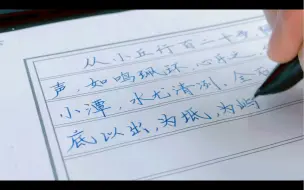 从小丘行百二十步
声，如鸣珮环，心
小潭，水尤清洌。全石
底以出，为坻，为屿